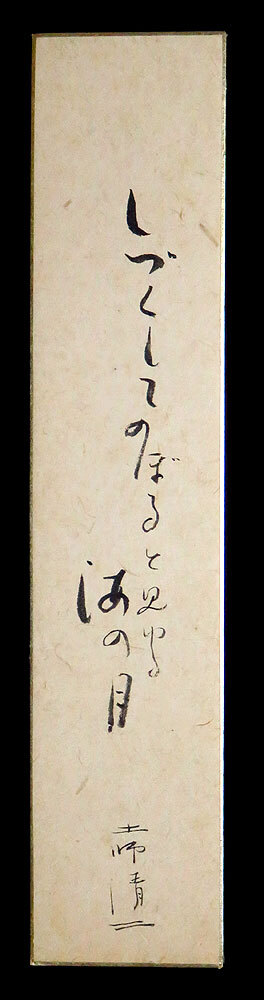 しづくしてのぼると見ゆる
海の月
土師清二